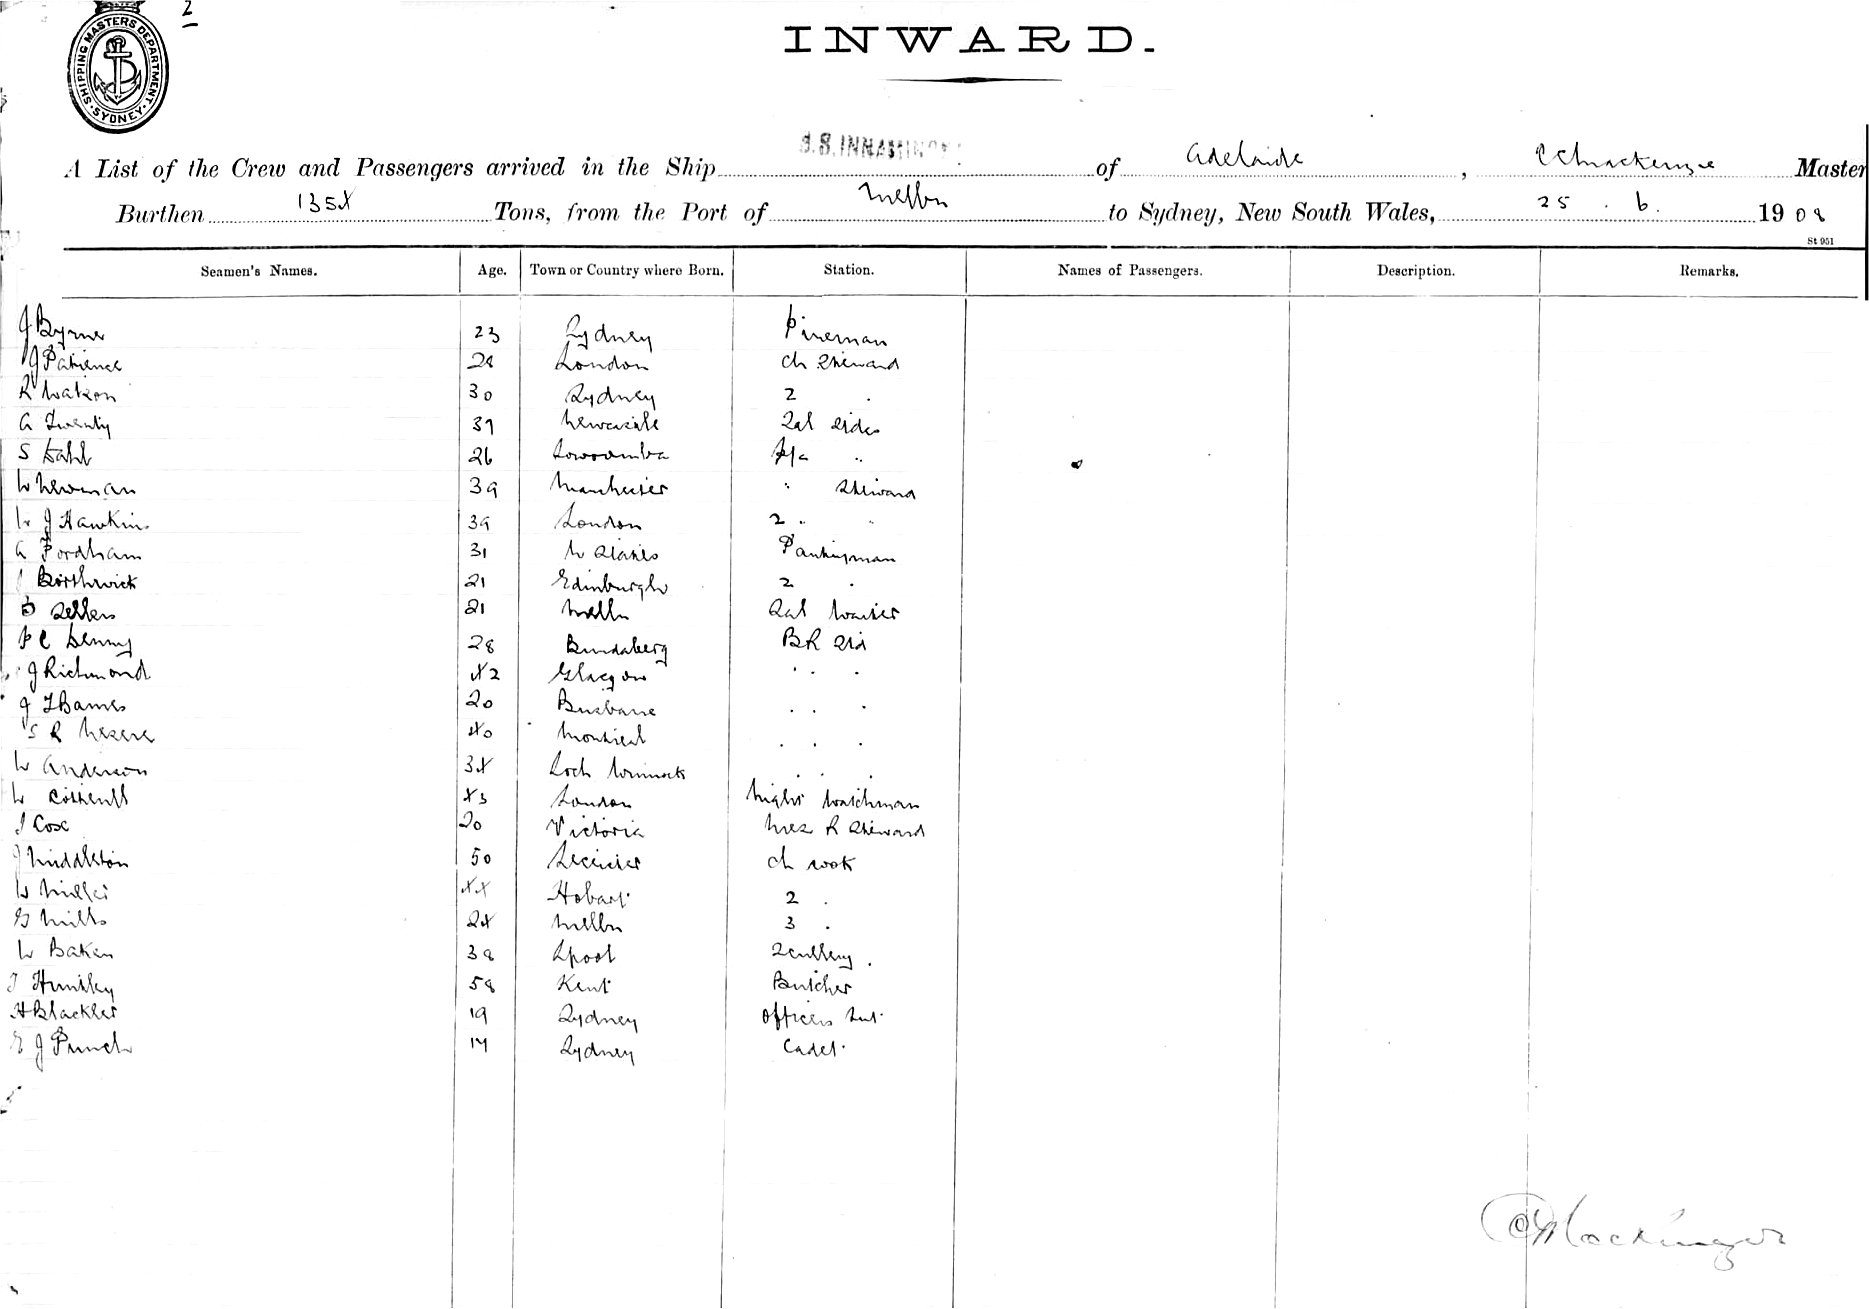 2
SHIPPING MASTERS DEPARTMENT
SYDNEY
INWARD.
A List of the Crew and Passengers arrived in the Ship S.S. INNAMINCKA of Adelaide, C C Mackenzie Master
Burthen 1354 Tons, from the Port of Melbn to Sydney, New South Wales, 25.6.1908
St 951
Seamen's Names. Age. Town or Country where Born. Station. Names of Passengers. Description. Remarks.
J Byrne 23 Sydney Fireman
J Patience 28 London Ch Steward
R Watson 30 Sydney 2 "
A Twenty 37 Newcastle Sal Stdes
S Dahl 26 Toowoomba F/c "
W Newman 39 Manchester " Steward
W J Hawkins 39 London 2 " "
A Fordham 31 U States Pantryman
Borthwick 21 Edinburgh 2 "
Sellers 21 Melbn Sal Waiter
F C Denny 28 Bundaberg B R Std
J Richmond 42 Glasgow " " "
J T Barnes 20 Brisbane " " "
S R 40 Montreal " " "
W Anderson 34 Loch Winnock " " "
W 43 London Night Watchman
J Cox 20 Victoria Mess R Steward
J Middleton 50 Leicester Ch Cook
W 44 Hobart 2 "
G Mills 24 Melbn 3 "
W Baker 38 Lpool Scullery "
T Huntley 58 Kent Butcher
H Blackler 19 Sydney Officers Svt
E J Punch 17 Sydney Cadet
C C Mackenzie